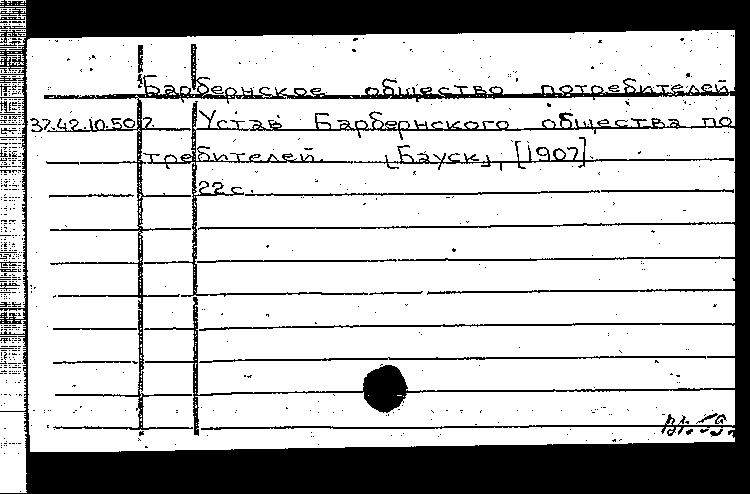 Барбернское общество потребителей.
37.42.10.507. Устав Барбернского общества по
требителей. [Бауск], [1907].
22 с.